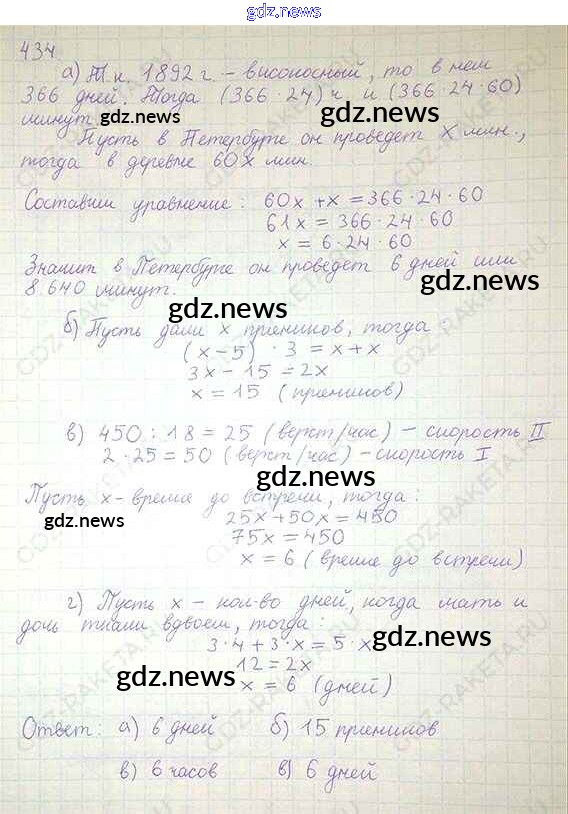 gdz.news
434
а) Т.к. 1892 г. – високосный, то в нем
366 дней. Тогда (366·24) ч и (366·24·60)
минут.
gdz.news
gdz.news
Пусть в Петербурге он проведет x мин.,
тогда в деревне 60x мин.
Составим уравнение: 60x + x = 366·24·60
61x = 366·24·60
x = 6·24·60
Значит в Петербурге он проведет 6 дней или
8 640 минут.
gdz.news
gdz.news
б) Пусть дали x пряников, тогда:
(x – 5) · 3 = x + x
3x – 15 = 2x
x = 15 (пряников)
в) 450 : 18 = 25 (верст/час) – скорость II
2·25 = 50 (верст/час) – скорость I
gdz.news
Пусть x – время до встречи, тогда:
gdz.news
25x + 50x = 450
75x = 450
x = 6 (время до встречи)
г) Пусть x – кол-во дней, когда мать и
дочь ткали вдвоем, тогда:
3·4 + 3·x = 5·x
gdz.news
12 = 2x
gdz.news
x = 6 (дней)
Ответ: а) 6 дней б) 15 пряников
в) 6 часов в) 6 дней
gdz.news